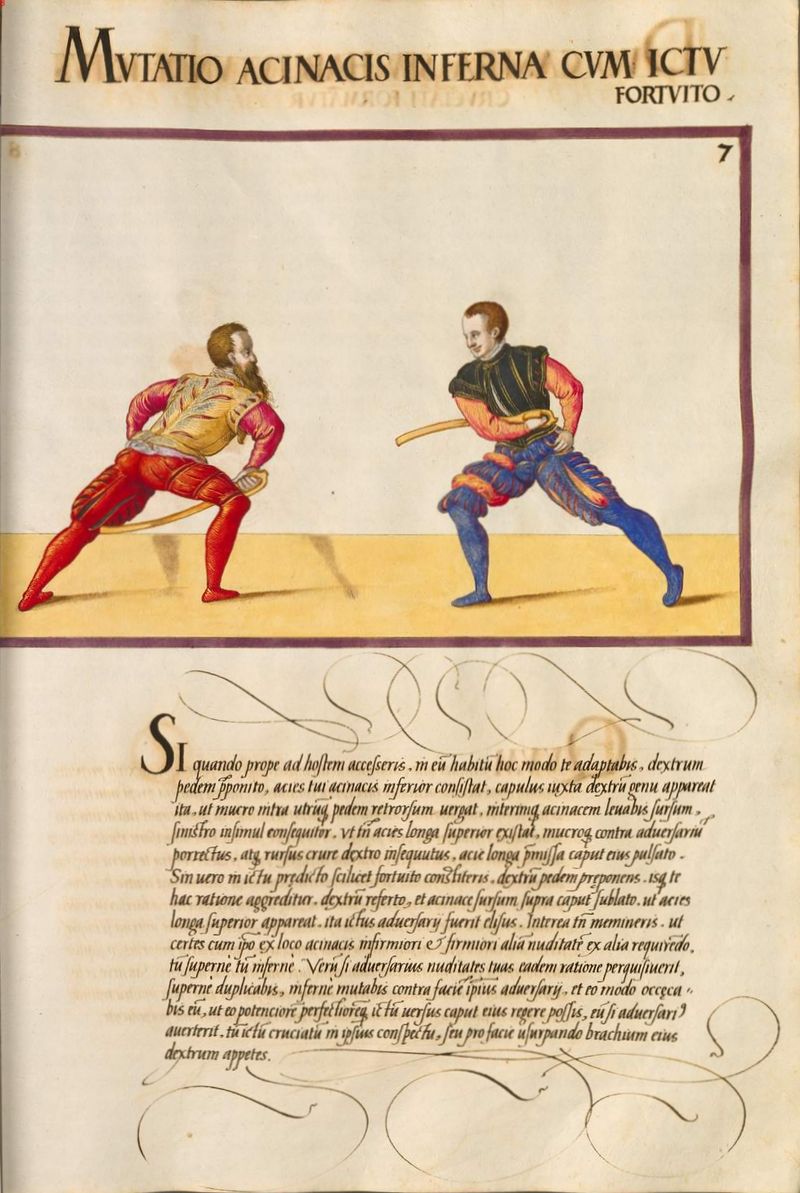 MVTATIO ACINACIS INFERNA CVM ICTV
FORTVITO.
7
SI quando prope ad hostem accesseris, in eū habitū hoc modo te adaptabis, dextrum
pedem p̄ponito, acies tui acinacis inferior consistat, capulus iuxta dextrū genu appareat
ita, ut mucro intra utrūq pedem retrorsum uergat, interimq acinacem leuabis sursum,
sinistro insimul consequitor, vt tn̄ acies longa superior existat, mucroq contra aduersariū
porrectus, atq rursus crure dextro insequutus, acie longa p̄missa caput eius pulsato.
Sin uero in ictu predicto scilicet fortuito constiteris, dextrū pedem preponens, isq te
hac ratione aggreditur, dextrū referto, et acinace sursum supra caput sublato, ut acies
longa superior appareat, ita ictus aduersarij fuerit elisus. Interea tn̄ memineris, ut
certes cum ip̄o ex loco acinacis infirmiori & firmiori aliā nuditatē ex alia requirēdo,
tū supernè tū infernè. Verū si aduersarius nuditates tuas eadem ratione perquisiuerit,
supernè duplicabis, infernè mutabis contra faciē ip̄ius aduersarij, et eo modo occęca-
bis eū, ut eo potenciorē perfectiorēq ictū uersus caput eius regere possis, eū si aduersariꝰ
auerterit, tū ictū cruciatū in ip̄sius conspectu, seu pro facie usurpando brachium eius
dextrum appetes.